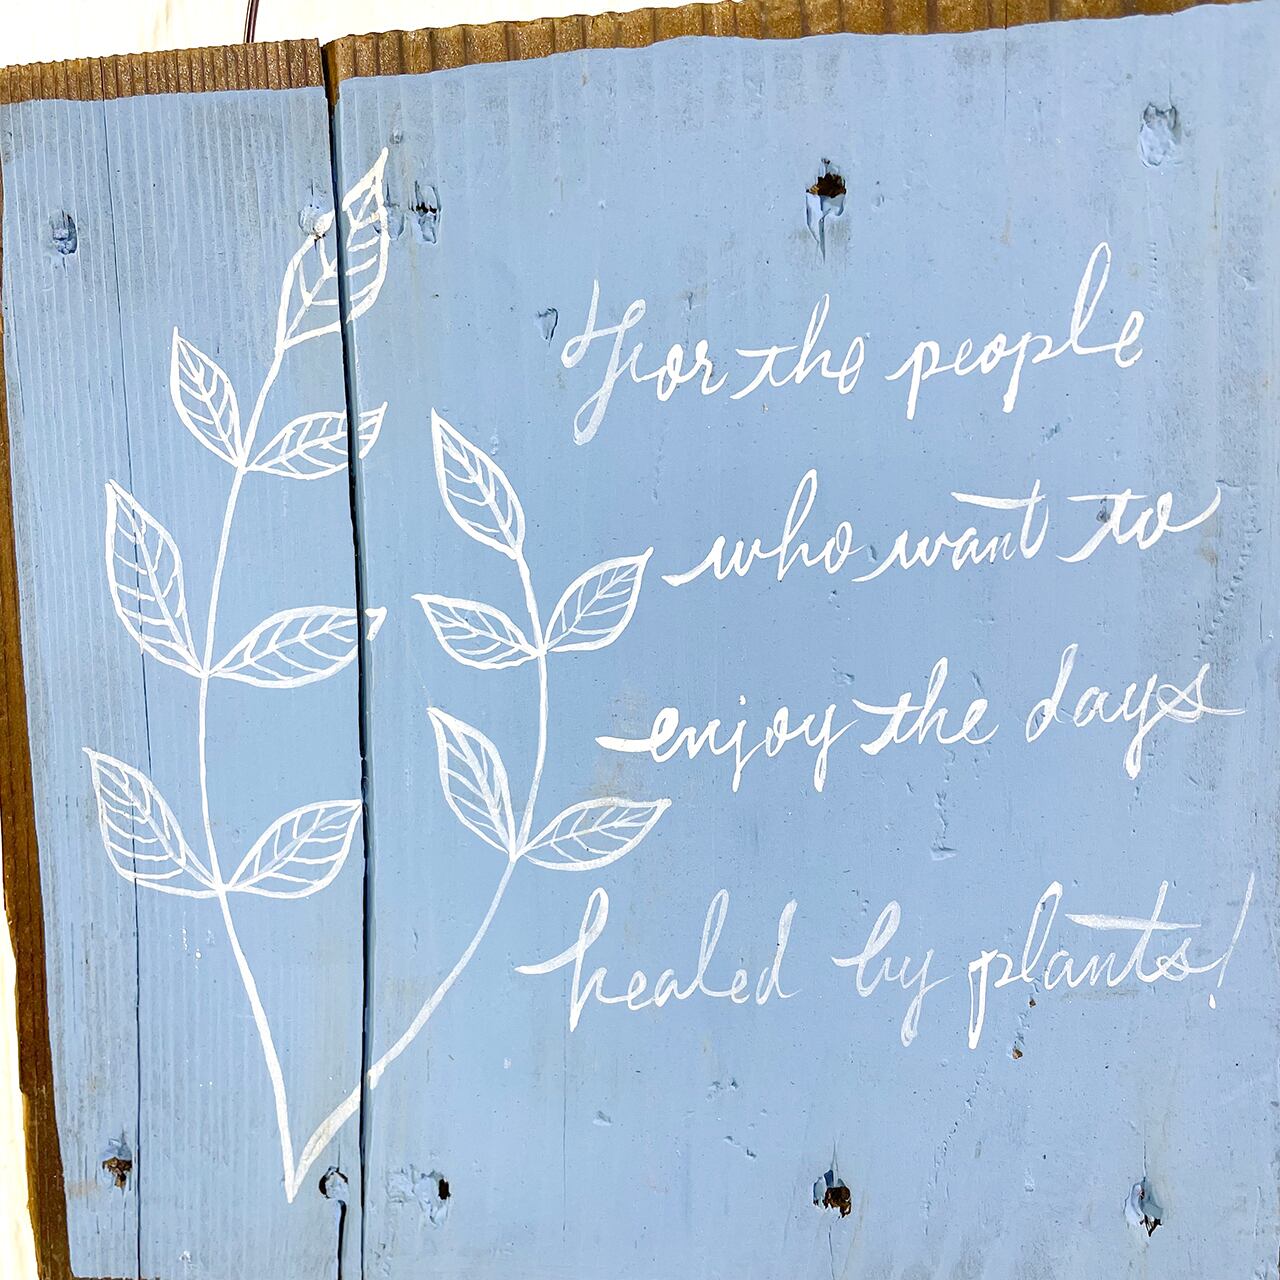 For the people
who want to
enjoy the days
healed by plants!